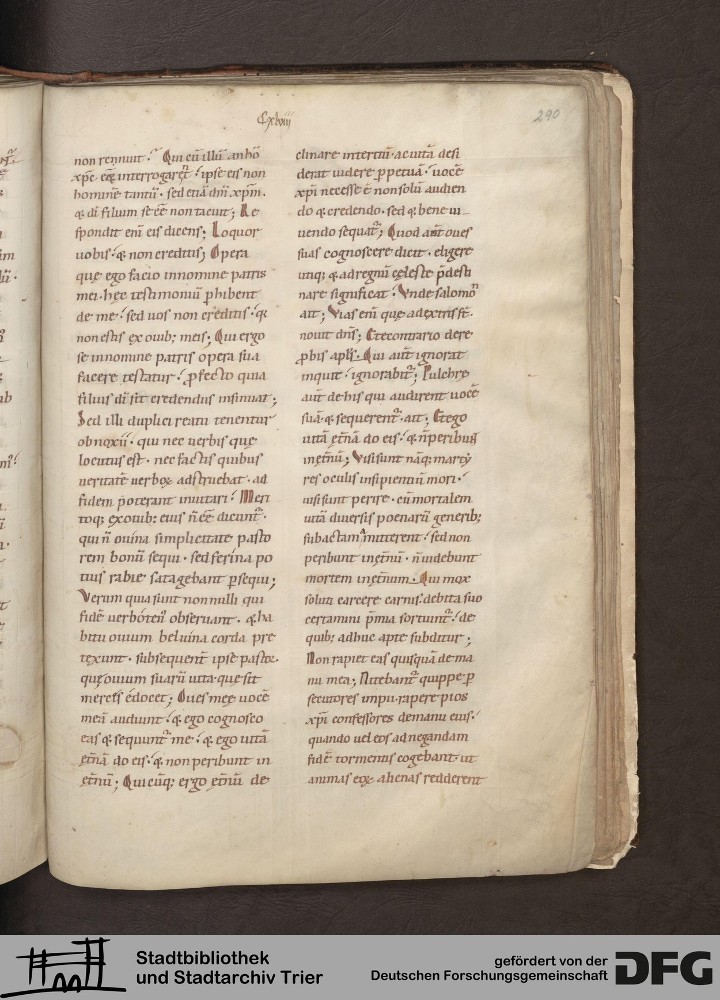 Cxlviii
290
non rennuit. Qui cū illū an hō
xp̄c eēt interrogaret᷑. ipse eis non
hominē tantū. sed etiā dn̄i xp̄m.
& di filium se eē non tacuit; Re
spondit eni eis dicens; Loquor
uobis. & non creditis; Opera
quę ego facio in nomine patris
mei. hęc testimoniū phibent
de me. sed uos non creditis. q;
non estis ex ouib; meis; Qui ergo
se in nomine patris opera sua
facere testatur. pfecto quia
filius di sit credendus insinuat;
Sed illi duplici reatu tenentur
obnoxii. qui nec uerbis quę
locutus est. nec factis quibus
ueritatē uerboꝝ adstruebat. ad
fidem poterant inuitari. Meri
toq; ex ouib; eius n̄ eē dicunt᷑.
qui n̄ ouina simplicitate pasto
rem bonū sequi. sed ferina po
tius rabie satagebant psequi;
Verum quia sunt nonnulli qui
fidē uerbo ten᷑ obseruant. & ha
bitu ouium beluina corda pre
texunt. subsequent᷑ ipse pastor.
quę ouium suarū uita. quę sit
merces edocet; Oues meę uocē
meā audiunt. & ego cognosco
eas & sequunt᷑ me. & ego uitā
et̄nā do eis. & non peribunt in
et̄nū; Quicūq; ergo et̄nū de
clinare interitū. ac uitā desi
derat uidere ppetuā. uocē
xp̄i necesse ē non solū audien
do & credendo. sed & bene ui
uendo sequat᷑; Quod aūt oues
suas cognoscere dicit. eligere
utiq; & ad regnū cęleste p̄desti
nare significat. Vnde salomo᷑
ait; Vias eni quę a dextris st̄.
nouit dn̄s; Et e contrario de re
pbis apl̄s. Qui aūt ignorat
inquit. ignorabit᷑; Pulchrę
aūt de his qui audirent uocē
suā & sequerent᷑. ait; Et ego
uitā et̄nā do eis. & n̄ peribun̄t
in et̄nū; Visi sunt nāq; marty
res oculis insipientiū mori.
uisi sunt perire. cū mortalem
uitā diuersis poenarū generib;
subactam mitterent. sed non
peribunt in et̄nū. n̄ uidebunt
mortem in et̄num. Qui mox
soluti carcere carnis. debita suo
certamini p̄mia sortiunt᷑. de
quib; adhuc apte subditur;
Non rapiet eas quisquā de ma
nu mea; Nitebant᷑ quippe p
secutores impii. rapere pios
xp̄i confessores de manu eius.
quando uel eos ad negandam
fidē tormentis cogebant. ut
animas eoꝝ alienas redderent
Stadtbibliothek
und Stadtarchiv Trier
gefördert von der
Deutschen Forschungsgemeinschaft
DFG